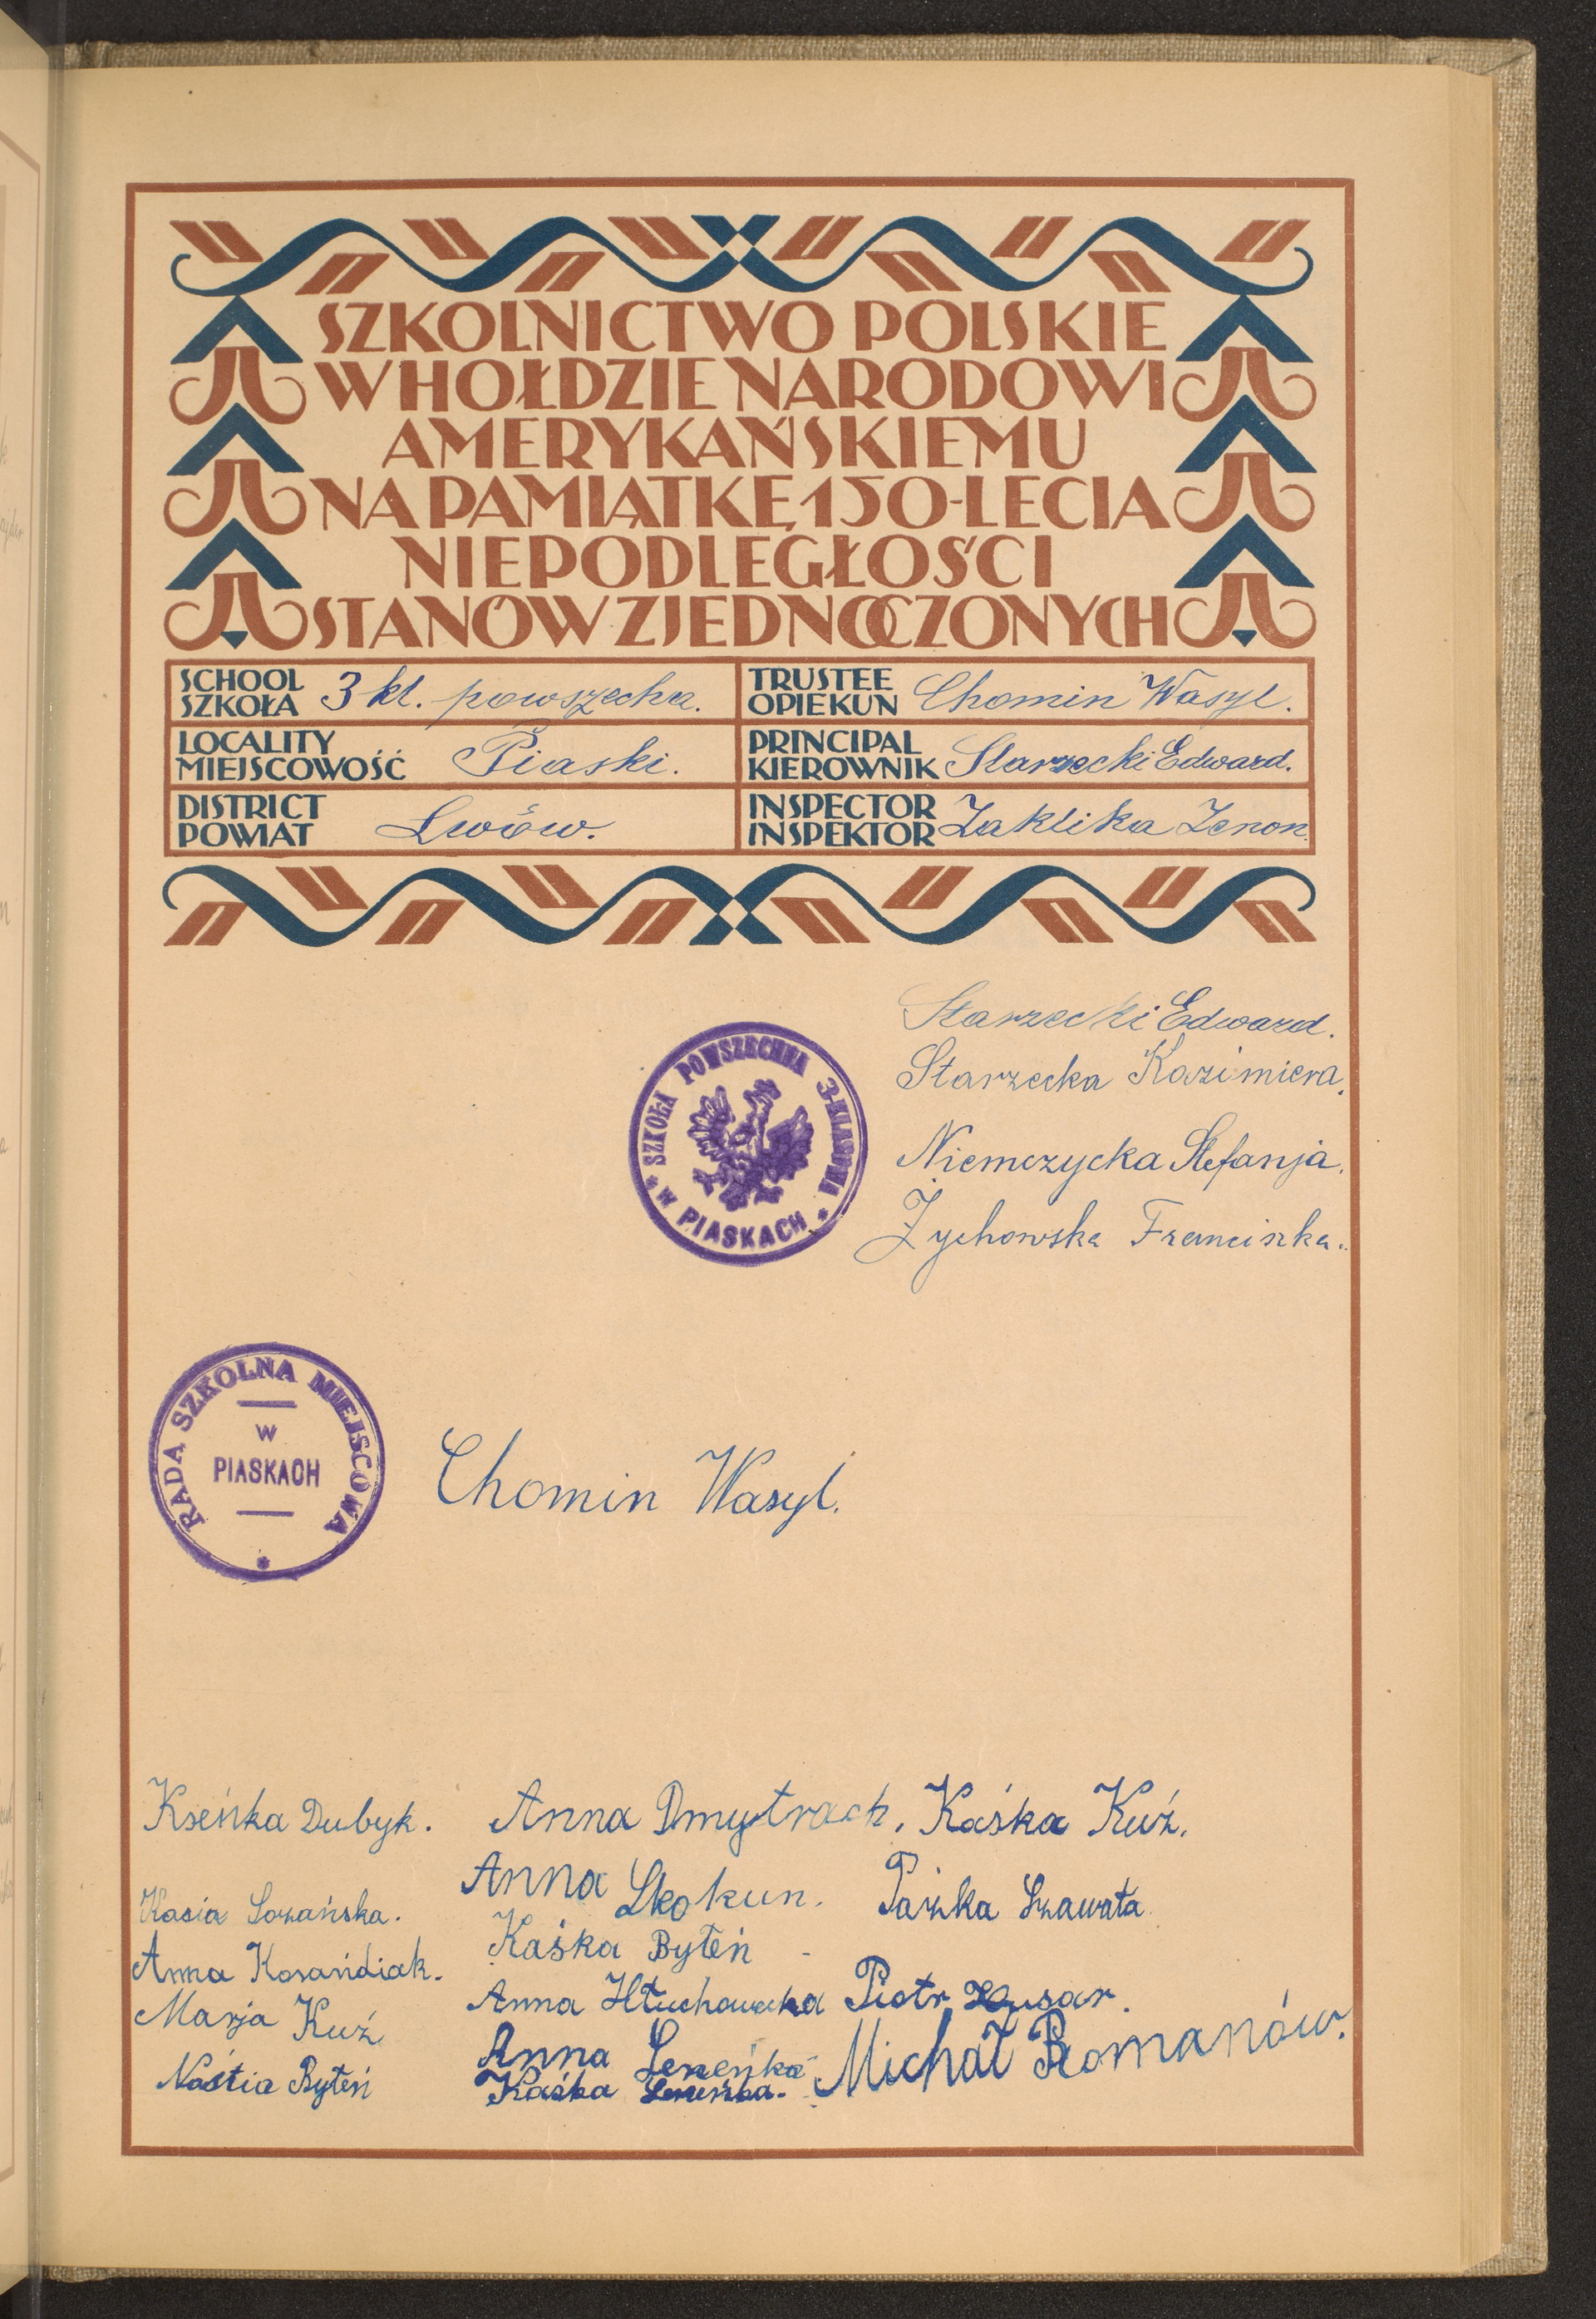 SZKOLNICTWO POLSKIE
W HOŁDZIE NARODOWI
AMERYKAŃSKIEMU
NA PAMIĄTKĘ 150-LECIA
NIEPODLEGŁOŚCI
STANÓW ZJEDNOCZONYCH
SCHOOL
SZKOŁA 3 kl. powszechn.
TRUSTEE
OPIEKUN Chomin Wasyl.
LOCALITY
MIEJSCOWOŚĆ Piaski.
PRINCIPAL
KIEROWNIK Starzecki Edward.
DISTRICT
POWIAT Lwów.
INSPECTOR
INSPEKTOR Zaklika Zenon.
Starzecki Edward.
Starzecka Kazimiera.
Niemczycka Stefanja.
Żychowska Franciszka.
* SZKOŁA POWSZECHNA 3-KLASOWA * W PIASKACH
RADA SZKOLNA MIEJSCOWA
W
PIASKACH
*
Chomin Wasyl.
Kseńka Dubyk. Anna Dmytrach. Kaśka Kuź.
Anna Skokun. Paźka Szawała
Kasia Łozańska.
Kaśka Byteń
Anna Korańdiak.
Anna Hłuchowecka Piotr Husar.
Marja Kuź
Anna Leneńka Michał Romanów.
Naśtia Byteń
Kaśka Leneńka.